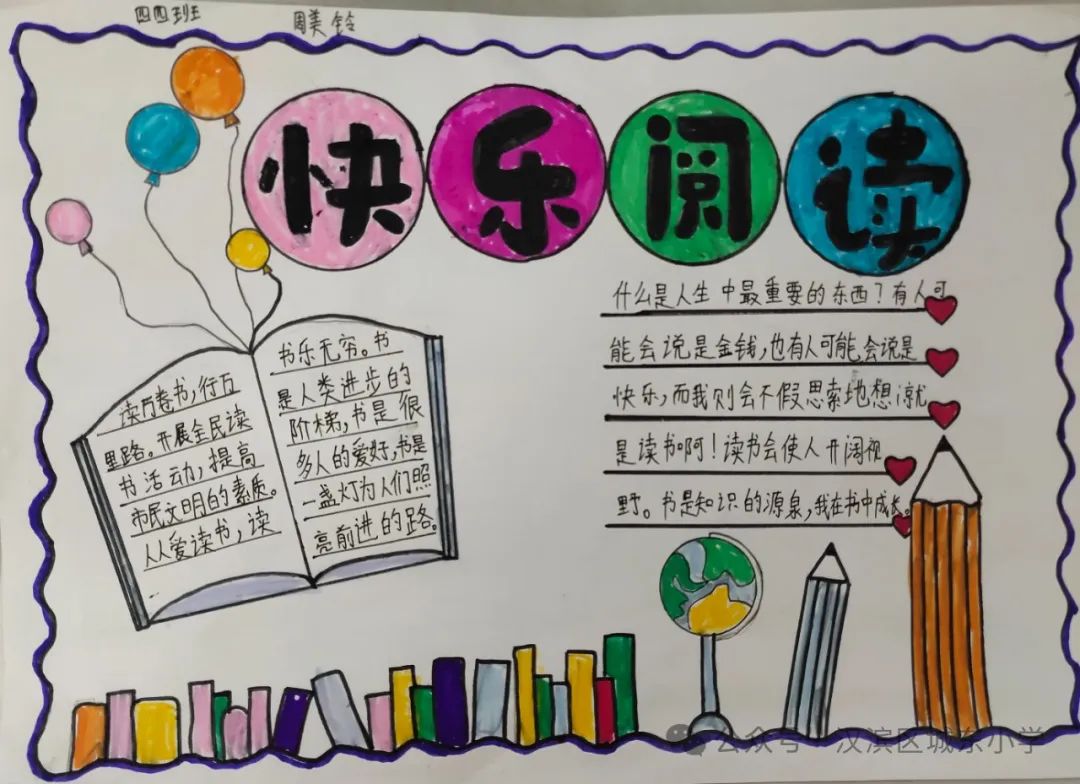 四四班
周美铃
快乐阅读
读万卷书,行万
里路。开展全民读
书活动,提高
市民文明的素质。
人人爱读书,读
书乐无穷。书
是人类进步的
阶梯,书是很
多人的爱好,书是
一盏灯为人们照
亮前进的路。
什么是人生中最重要的东西?有人可
能会说是金钱,也有人可能会说是
快乐,而我则会不假思索地想:就
是读书啊!读书会使人开阔视
野。书是知识的源泉,我在书中成长。
公众号·汉滨区城东小学